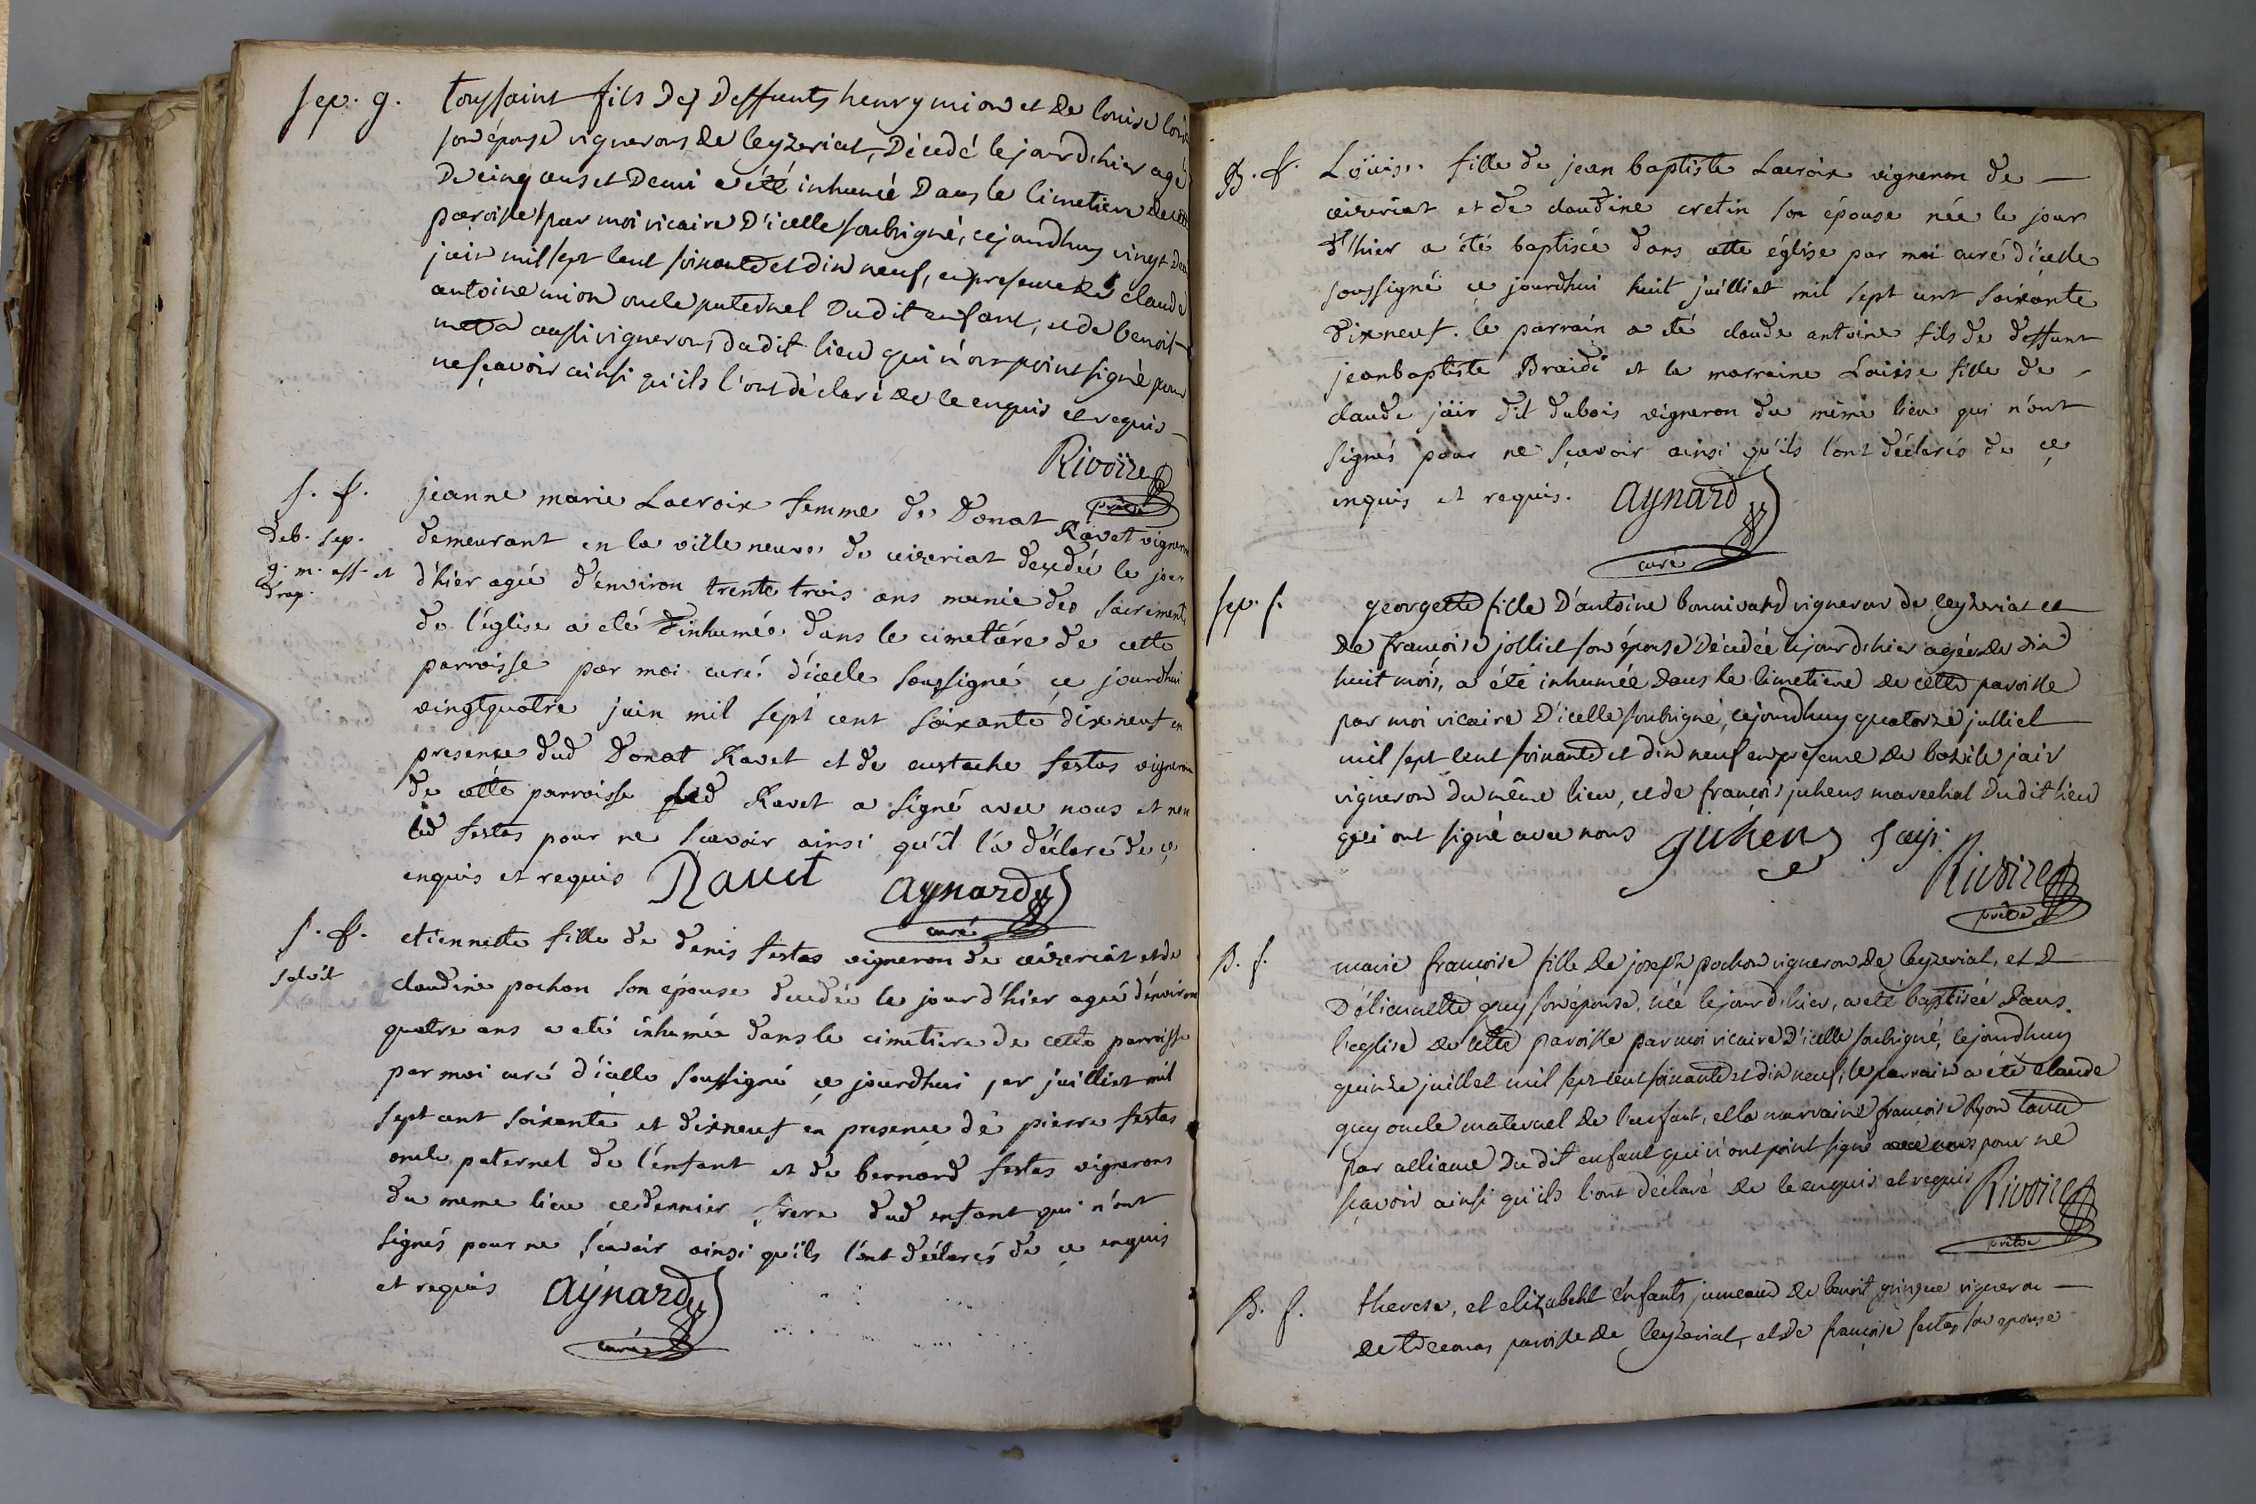 sep. g. toussaint fils des deffunts henry mion et de louise
son épouse vignerons de ceyzeriat, décédé le jour d'hier agé
de cinq ans et demi a été inhumé dans le cimetiere de cette
paroisse par moi vicaire d'icelle soubsigné, cejourdhuy vingt deux
juin mil sept cent soixante et dix neuf, en presence de claude
antoine mion oncle paternel dudit enfant, et de benoit
aussi vignerons dudit lieu qui n'ont point signé pour
ne sçavoir ainsi qu'ils l'ont déclaré de ce enquis et requis
Rivoire
prêtre
s. f. jeanne marie Lacroix femme de Donat Ravet vigneron
deb. sep. demeurant en la ville neuve de ceizeriat decedée le jour
g. m. aff. et d'hier agée d'environ trente trois ans munie des sacrements
drap. de l'église a eté inhumée dans le cimetiére de cette
parroisse par moi curé d'icelle soussigné ce jourdhui
vingtquatre juin mil sept cent soixante dixneuf en
presence dud Donat Ravet et de eustache festas vigneron
de cette parroisse led Ravet a signé avec nous et non
led festas pour ne scavoir ainsi qu'il l'a déclaré de ce
enquis et requis Ravet aynard
curé
s. f. etiennette fille de denis festas vigneron de ceizeriat et de
solvit claudine pochon son épouse decedée le jour d'hier agée d'environ
quatre ans a eté inhumée dans le cimetiere de cette parroisse
par moi curé d'icelle soussigné ce jourdhui 1er juilliet mil
sept cent soixante et dixneuf en presence de pierre festas
oncle paternel de l'enfant et de bernard festas vignerons
du meme lieu ce dernier frere dud enfant qui n'ont
signés pour ne scavoir ainsi qu'ils l'ont déclarés de ce enquis
et requis aynard
curé
B. f. Loüise fille de jean baptiste Lacroix vigneron de
ceizeriat et de claudine cretin son épouse née le jour
d'hier a été baptisée dans cette église par moi curé d'icelle
soussigné ce jourdhui huit juilliet mil sept cent soixante
dixneuf. le parrain a été claude antoine fils de deffunt
jeanbaptiste Braidi et la marraine Loüise fille de
claude jäir dit dubois vigneron du même lieu qui n'ont
signés pour ne sçavoir ainsi qu'ils l'ont déclarés de ce
enquis et requis. aynard
curé
sep. f. georgette fille d'antoine bonnivard vigneron de ceyzeriat et
de francoise jolliet son épouse décédée le jour d'hier agée de dix
huit mois, a été inhumée dans le cimetiere de cette paroisse
par moi vicaire d'icelle soubsigné, cejourdhuy quatorze julliet
mil sept cent soixante et dix neuf en presence de bazile jair
vigneron du même lieu, et de francois juhens marechal dudit lieu
qui ont signé avec nous juhen jayr
Rivoire
prêtre
B. f. marie françoise fille de joseph pochon vigneron de ceyzeriat, et
d'étiennette guy son épouse, née le jour d'hier, a eté baptisée dans
l'eglise de cette paroisse par moi vicaire d'icelle soubsigné, cejourdhuy
quinze juillet mil sept cent soixante et dix neuf, le parrain a été claude
guy oncle maternel de l'enfant, et la marraine françoise Ryon tante
par alliance dudit enfant qui n'ont point signé avec nous pour ne
sçavoir ainsi qu'ils l'ont déclaré de ce enquis et requis Rivoire
prêtre
B. f. therese, et elizabeht enfants jumeaux de benoit vigneron
de paroisse de ceyzeriat, et de françoise festas son epouse